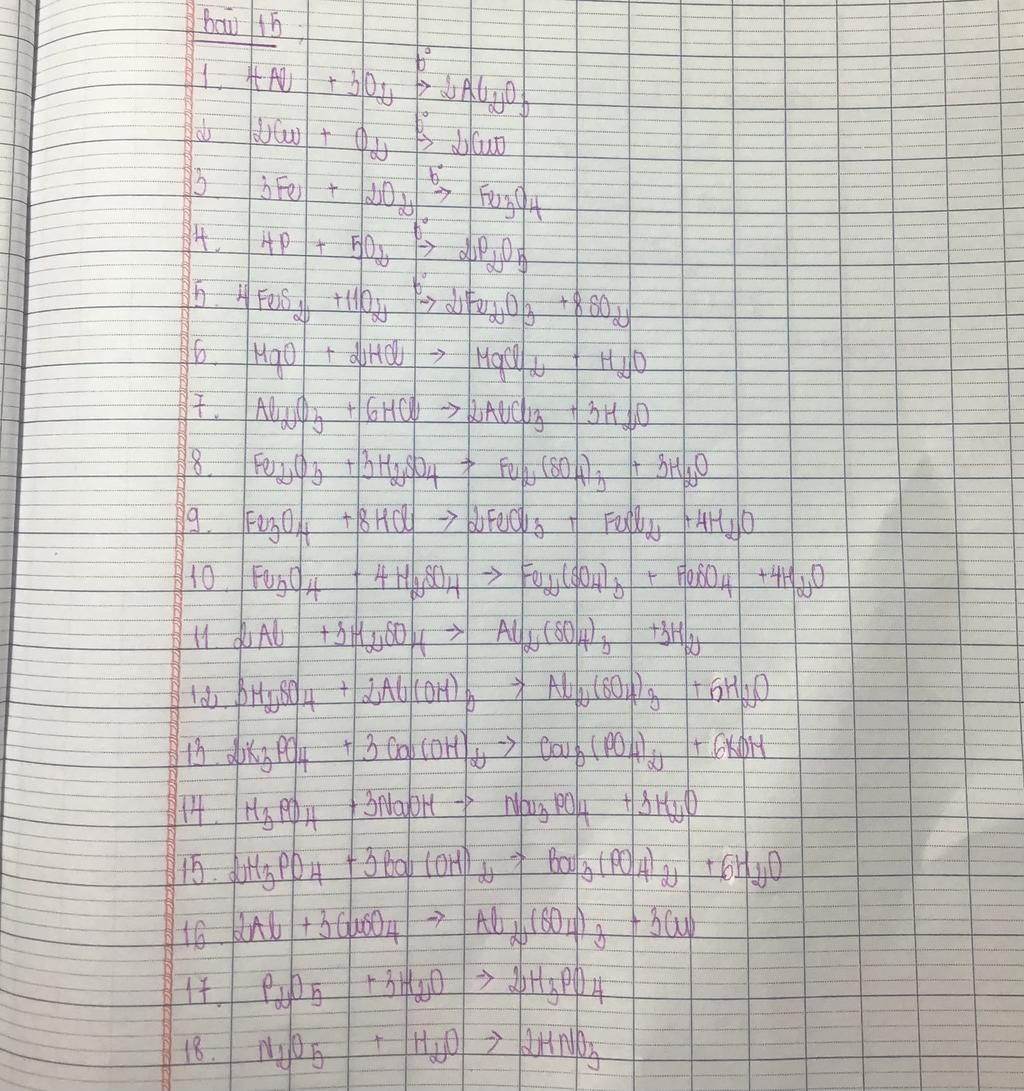 Bài 15
1. 4Al + 3O₂ t°→ 2Al₂O₃
2 2Cu + O₂ t°→ 2CuO
3 3Fe + 2O₂ t°→ Fe₃O₄
4. 4P + 5O₂ t°→ 2P₂O₅
5. 4FeS₂ + 11O₂ t°→ 2Fe₂O₃ + 8SO₂
6. MgO + 2HCl → MgCl₂ + H₂O
7. Al₂O₃ + 6HCl → 2AlCl₃ + 3H₂O
8. Fe₂O₃ + 3H₂SO₄ → Fe₂(SO₄)₃ + 3H₂O
9. Fe₃O₄ + 8HCl → 2FeCl₃ + FeCl₂ + 4H₂O
10. Fe₃O₄ + 4H₂SO₄ → Fe₂(SO₄)₃ + FeSO₄ + 4H₂O
11 2Al + 3H₂SO₄ → Al₂(SO₄)₃ + 3H₂
12. 3H₂SO₄ + 2Al(OH)₃ → Al₂(SO₄)₃ + 6H₂O
13 2K₃PO₄ + 3Ca(OH)₂ → Ca₃(PO₄)₂ + 6KOH
14. H₃PO₄ + 3NaOH → Na₃PO₄ + 3H₂O
15. 2H₃PO₄ + 3Ba(OH)₂ → Ba₃(PO₄)₂ + 6H₂O
16 2Al + 3CuSO₄ → Al₂(SO₄)₃ + 3Cu
17. P₂O₅ + 3H₂O → 2H₃PO₄
18. N₂O₅ + H₂O → 2HNO₃